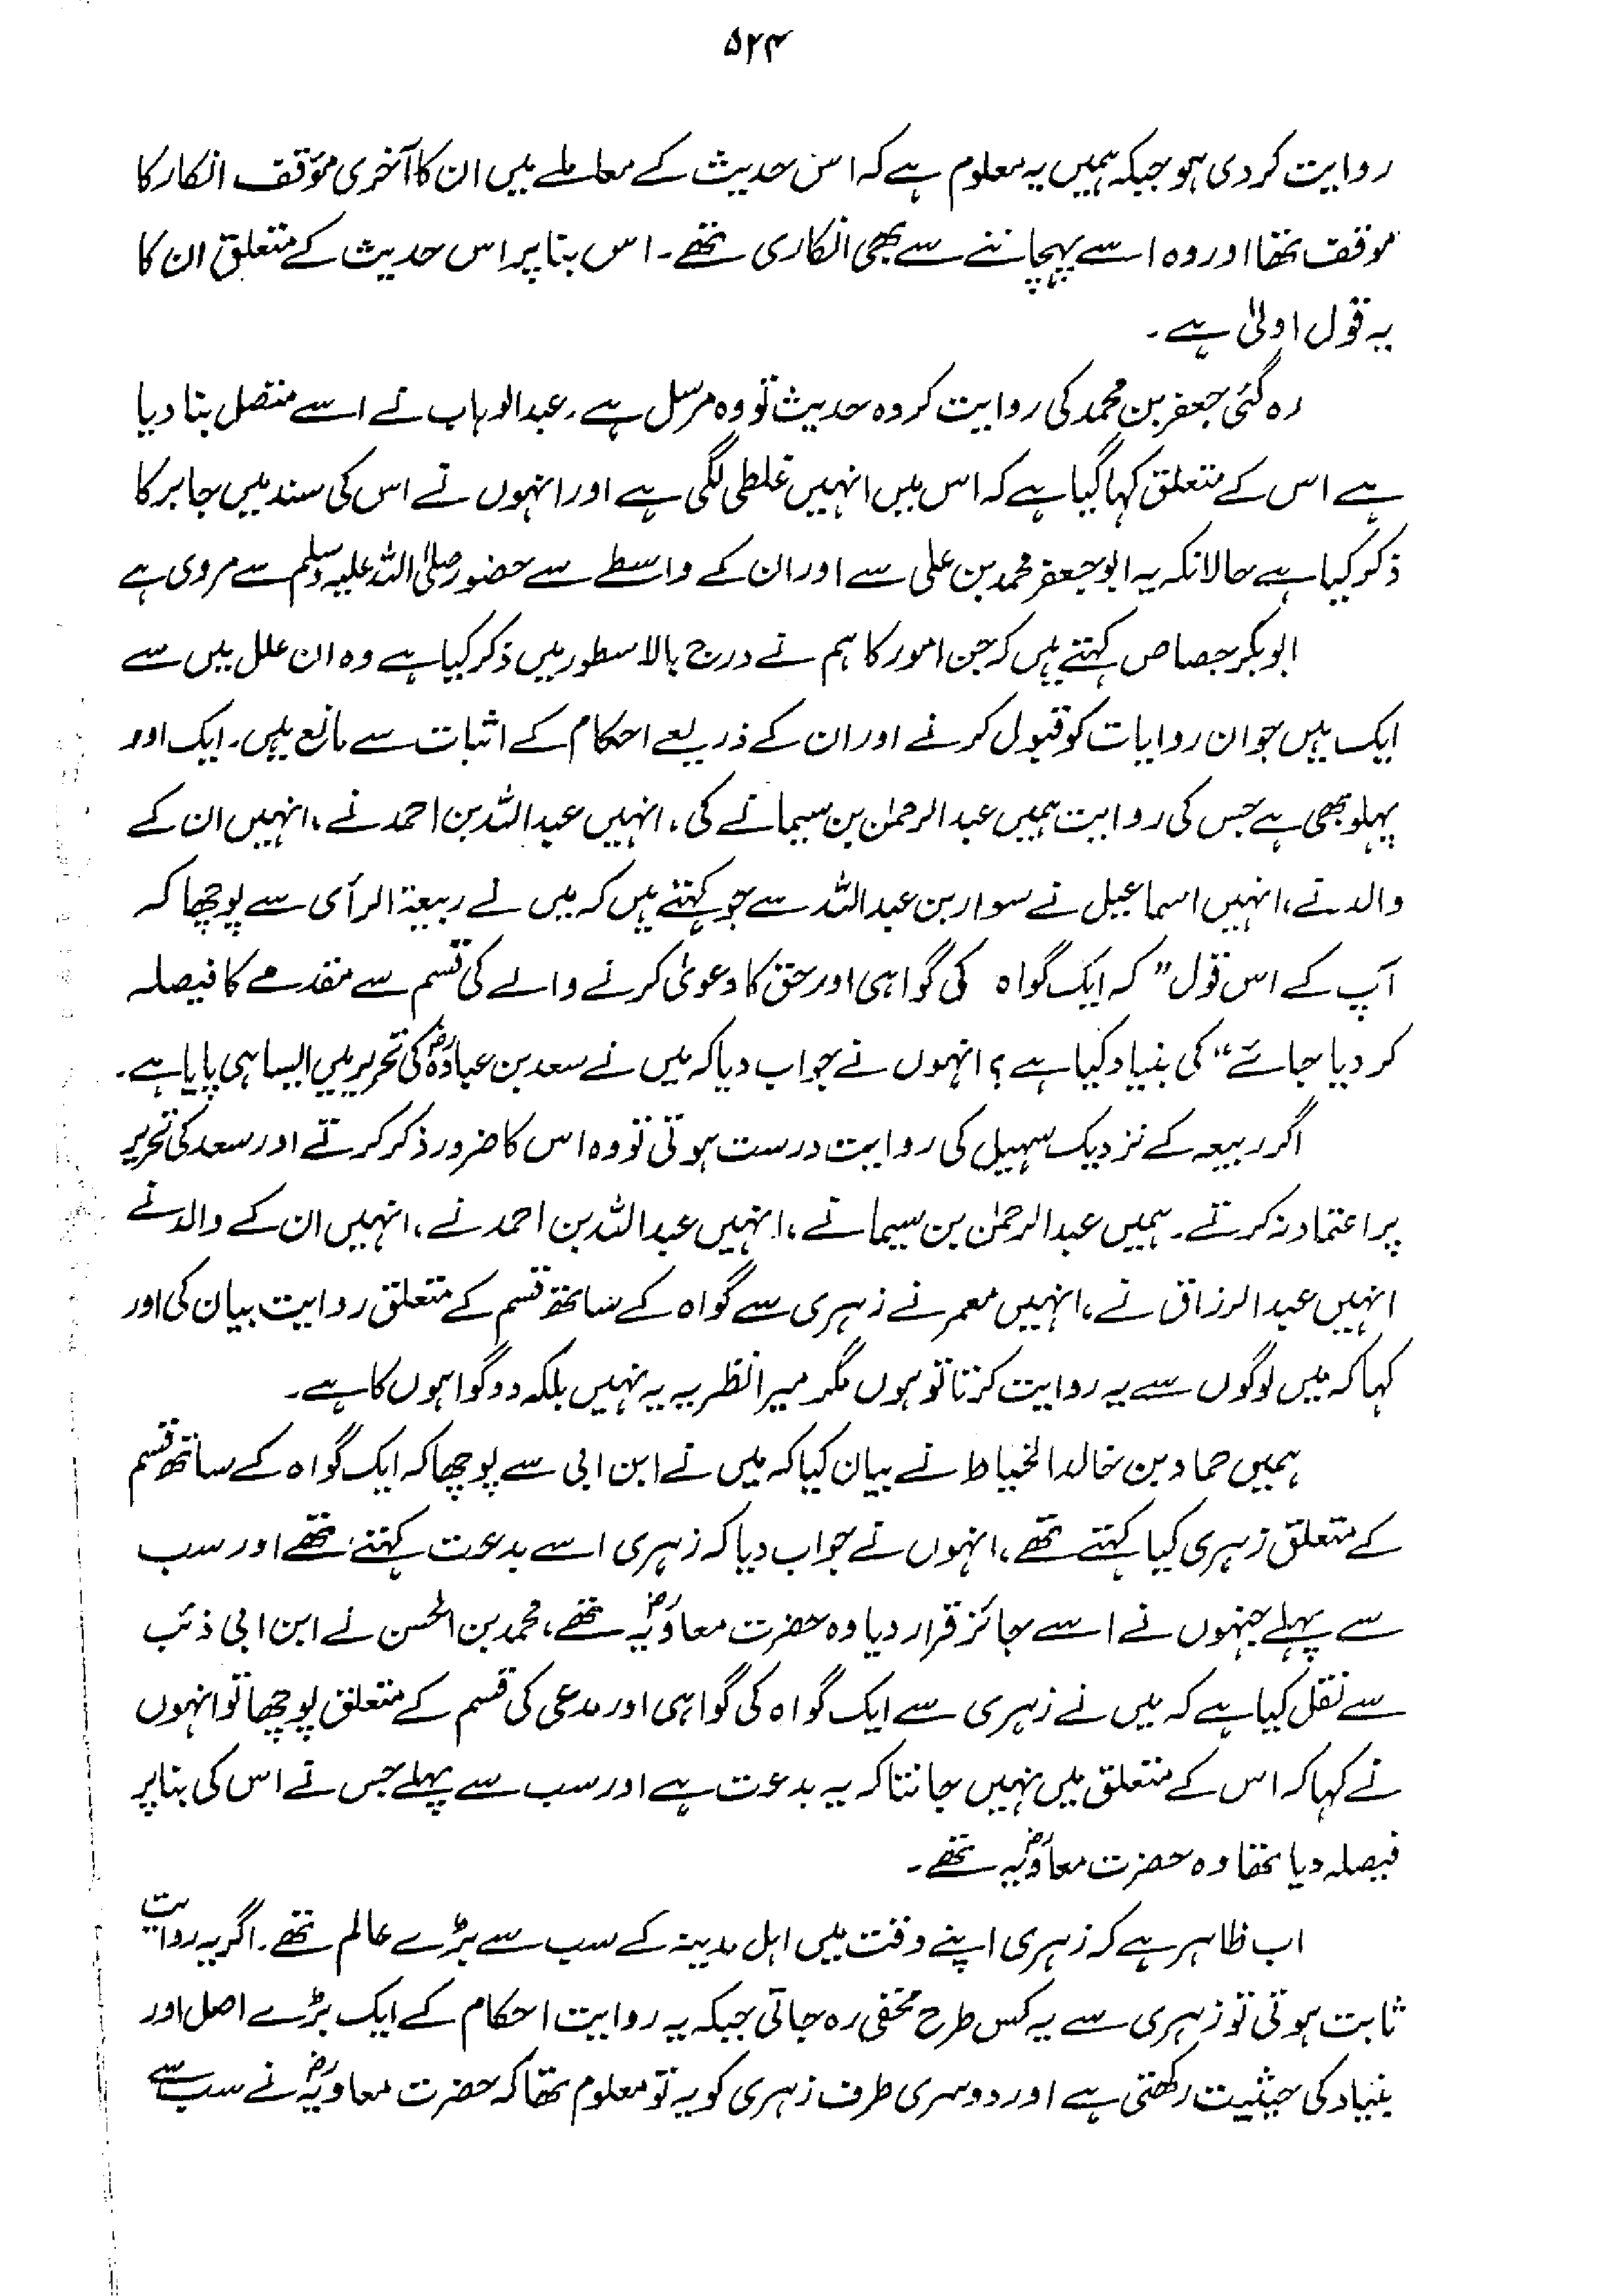 ۵۲۴
روایت کردی ہو جبکہ ہمیں یہ معلوم ہے کہ اس حدیث کے معاملے میں ان کا آخری مؤقف انکار کا
موقف تھا اور وہ اسے پہچاننے سے بھی انکاری تھے۔ اس بنا پر اس حدیث کے متعلق ان کا
یہ قول اولیٰ ہے۔
رہ گئی جعفر بن محمد کی روایت کردہ حدیث تو وہ مرسل ہے۔ عبدالوہاب نے اسے متصل بنا دیا
ہے اس کے متعلق کہا گیا ہے کہ اس میں انہیں غلطی لگی ہے اور انہوں نے اس کی سند میں جابر کا
ذکر کیا ہے حالانکہ یہ ابو جعفر محمد بن علی سے اور ان کے واسطے سے حضور صلی اللہ علیہ وسلم سے مروی ہے
ابوبکر جصاص کہتے ہیں کہ جن امور کا ہم نے درج بالا سطور میں ذکر کیا ہے وہ ان علل میں سے
ایک ہیں جو ان روایات کو قبول کرنے اور ان کے ذریعے احکام کے اثبات سے مانع ہیں۔ ایک اور
پہلو بھی ہے جس کی روایت ہمیں عبدالرحمٰن بن سیما نے کی، انہیں عبداللہ بن احمد نے، انہیں ان کے
والد نے، انہیں اسماعیل نے سوار بن عبداللہ سے جو کہتے ہیں کہ میں نے ربیعۃ الرأی سے پوچھا کہ
آپ کے اس قول ”کہ ایک گواہ کی گواہی اور حق کا دعویٰ کرنے والے کی قسم سے مقدمے کا فیصلہ
کر دیا جائے“ کی بنیاد کیا ہے؟ انہوں نے جواب دیا کہ میں نے سعد بن عبادہؓ کی تحریر میں ایسا ہی پایا ہے۔
اگر ربیعہ کے نزدیک سہیل کی روایت درست ہوتی تو وہ اس کا ضرور ذکر کرتے اور سعد کی تحریر
پر اعتماد نہ کرتے۔ ہمیں عبدالرحمٰن بن سیما نے، انہیں عبداللہ بن احمد نے، انہیں ان کے والد نے
انہیں عبدالرزاق نے، انہیں معمر نے زہری سے گواہ کے ساتھ قسم کے متعلق روایت بیان کی اور
کہا کہ میں لوگوں سے یہ روایت کرتا تو ہوں مگر میرا نظریہ یہ نہیں بلکہ دو گواہوں کا ہے۔
ہمیں حماد بن خالد الخیاط نے بیان کیا کہ میں نے ابن ابی سے پوچھا کہ ایک گواہ کے ساتھ قسم
کے متعلق زہری کیا کہتے تھے، انہوں نے جواب دیا کہ زہری اسے بدعت کہتے تھے اور سب
سے پہلے جنہوں نے اسے جائز قرار دیا وہ حضرت معاویہؓ تھے، محمد بن الحسن نے ابن ابی ذئب
سے نقل کیا ہے کہ میں نے زہری سے ایک گواہ کی گواہی اور مدعی کی قسم کے متعلق پوچھا تو انہوں
نے کہا کہ اس کے متعلق میں نہیں جانتا کہ یہ بدعت ہے اور سب سے پہلے جس نے اس کی بنا پر
فیصلہ دیا تھا وہ حضرت معاویہؓ تھے۔
اب ظاہر ہے کہ زہری اپنے وقت میں اہل مدینہ کے سب سے بڑے عالم تھے۔ اگر یہ روایت
ثابت ہوتی تو زہری سے یہ کس طرح مخفی رہ جاتی جبکہ یہ روایت احکام کے ایک بڑے اصل اور
بنیاد کی حیثیت رکھتی ہے اور دوسری طرف زہری کو یہ تو معلوم تھا کہ حضرت معاویہؓ نے سب سے